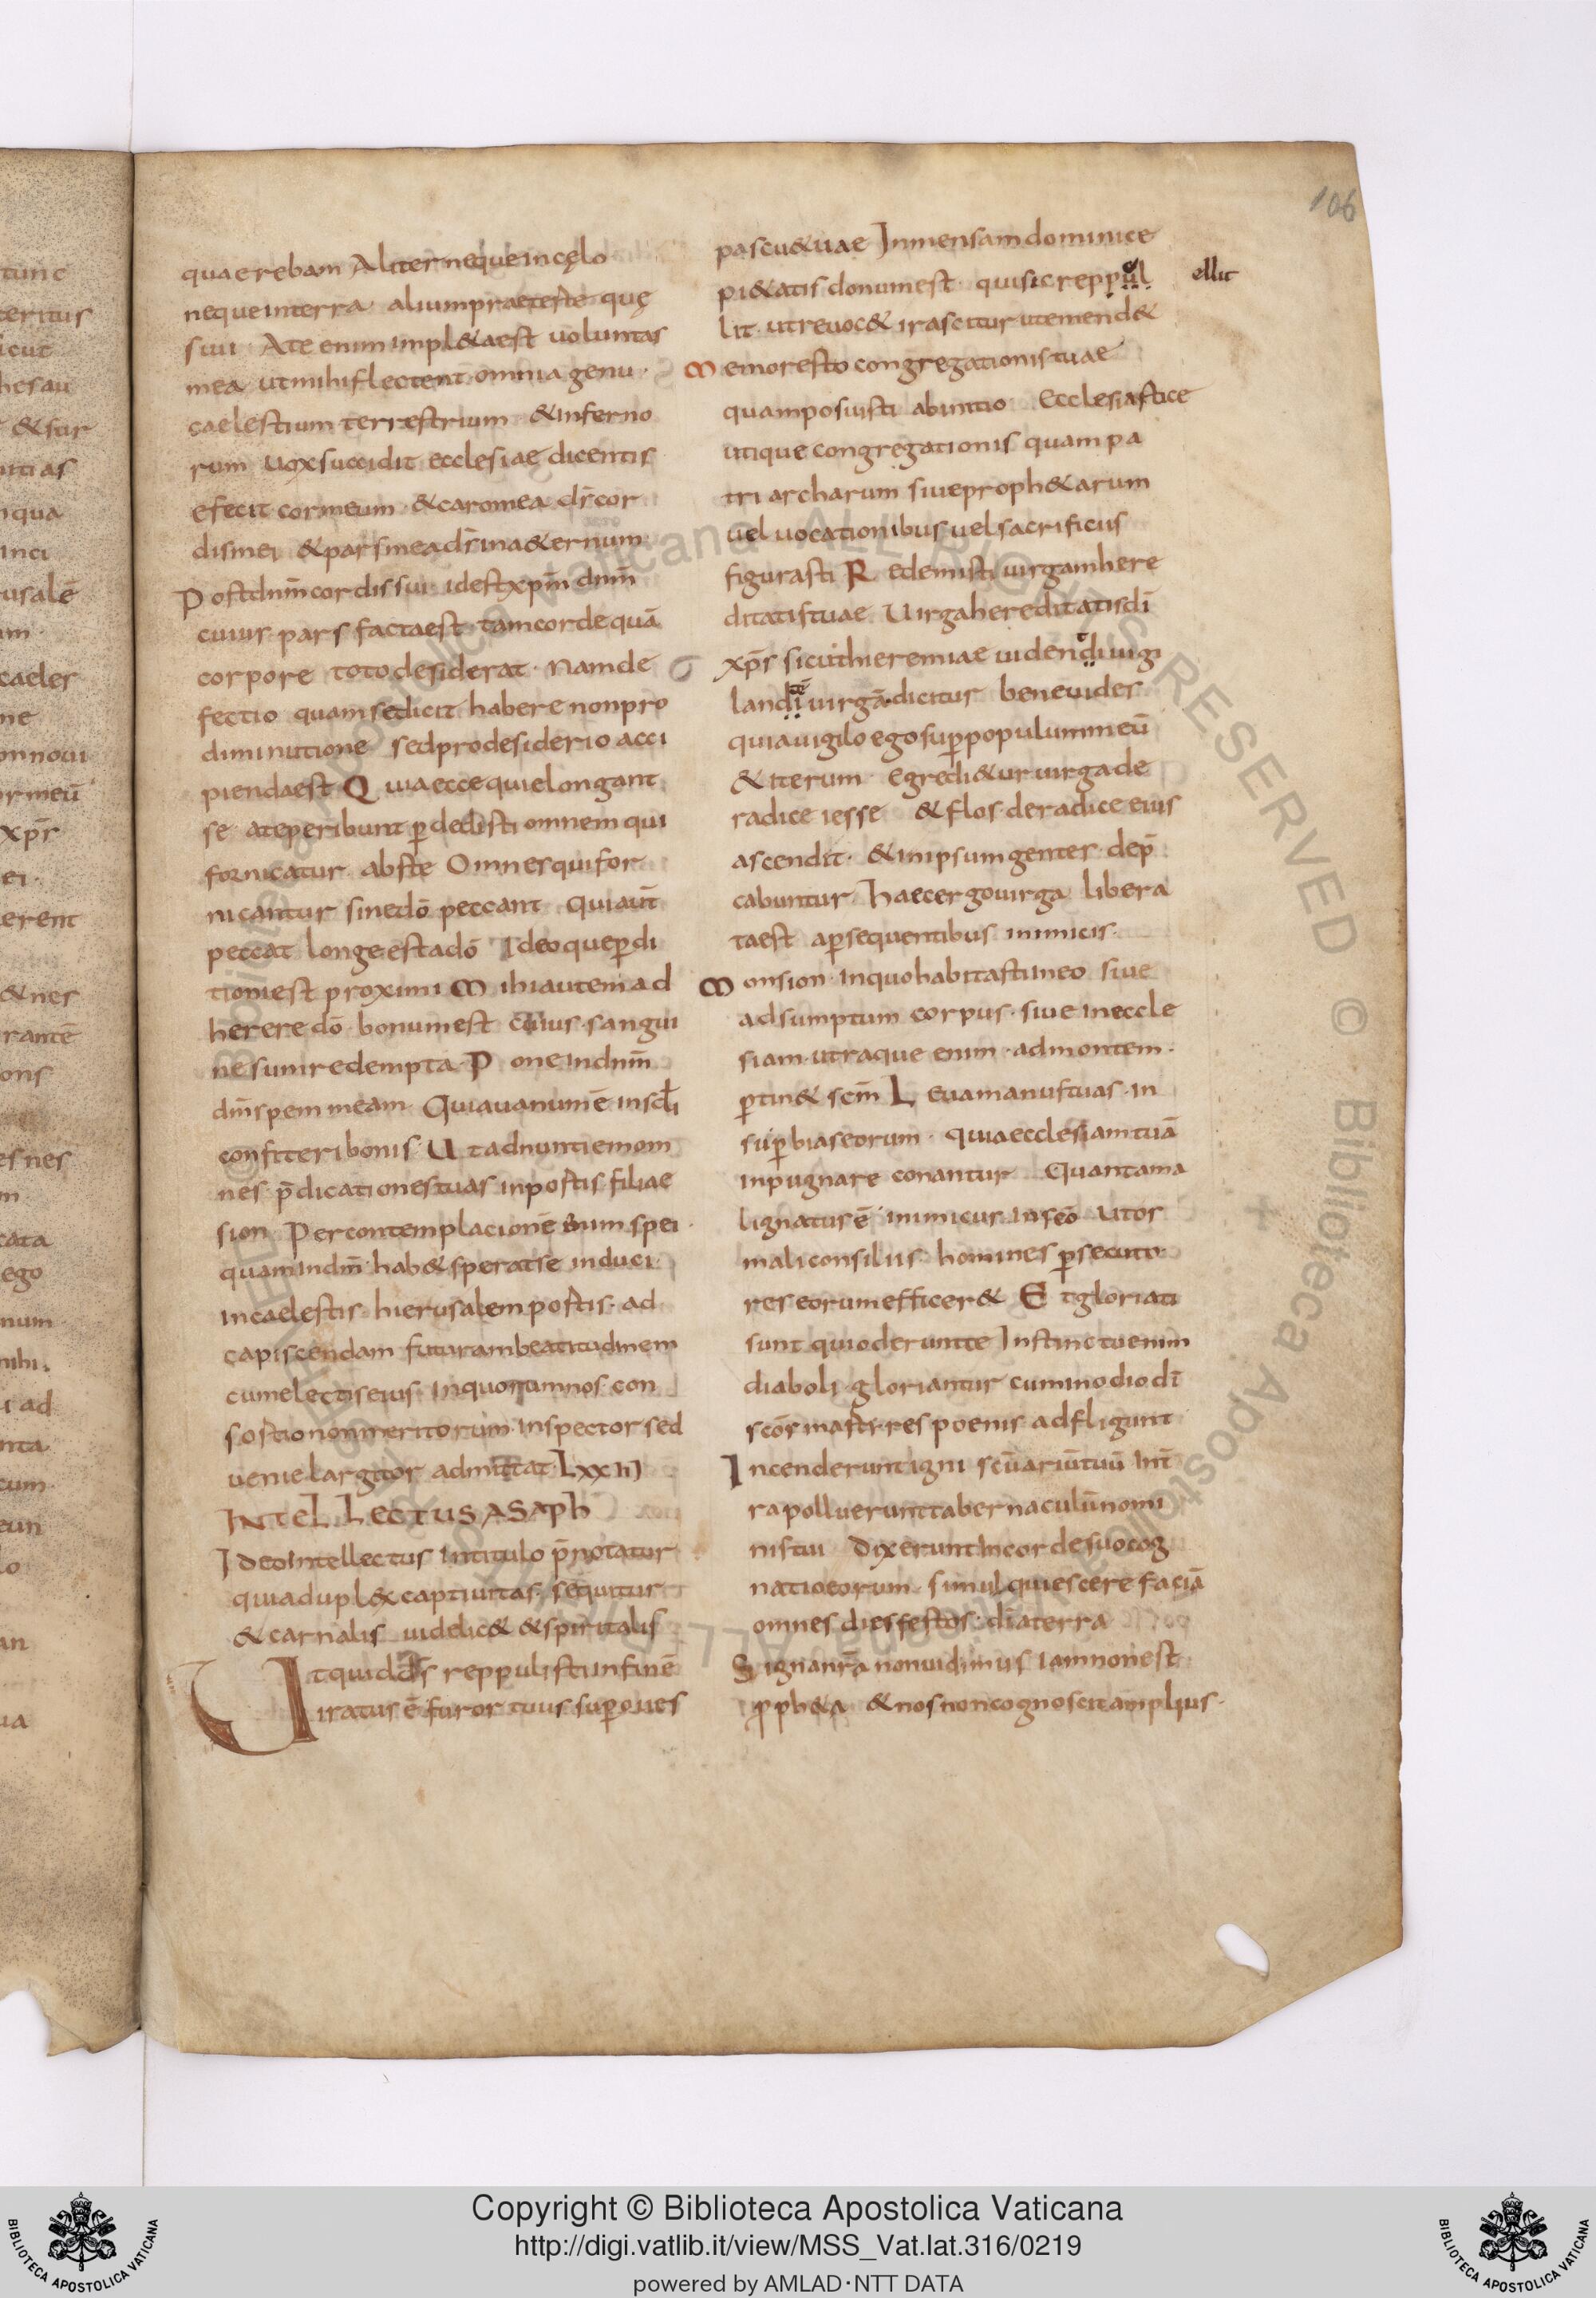 106
quaerebam Aliter neque in cęlo
neque in terra aliumpraeteste quę
siui Ate enim impl&aest uoluntas
mea ut mihi flectent omnia genu
caelestium terrestrium & inferno
rum uox succidit ecclesiae dicentis
efecit cor meum & caro mea d̄s cor
dis mei & pars mea d̄s in a&ernum
Post dn̄m cordis sui idest xp̄m dn̄m
cuius pars facta est tam corde quā
corpore toto desiderat Nam de
fectio quam se dicit habere non pro
diminutione sed pro desiderio acci
pienda est Quia ecce qui elongant
se ate peribunt ꝑdedisti omnem qui
fornicatur abste Omnes qui for
nicantur sine dō peccant Qui aūt
peccat longe est adō Ideoque ꝑdi
tioni est proximi Mihi autem ad
herere dō bonum est cuius sangui
ne sum redempta Pone in dn̄m
dm̄ spem meam Quia uanum ē in scłi
confiteri bonis Ut adnuntiem om
nes p̄dicationes tuas in postis filiae
sion Per contemplacionē spei
quam in dn̄m hab& sperat se induci
in caelestis hierusalem postis ad
capiscendam futuram beatitudinem
cum electis eius In quorum nos con
sostio non meritorum inspector sed
uenie largitor admittat LXXIII
INTELLECTUS ASAPH
Ideo Intellectus in titulo p̄notatur
quia dupl&x captiuitas sequitur
& carnalis uidelic& & spiritalis
Ut quid ds reppulisti in finē
iratus ē furor tuus suꝑ oues
pascu& uae Inmensam dominice
pi&atis donum est qui sic reppul
ellit
lit ut reuoc& irascitur ut emend&
Memor esto congregationis tuae
quam posuisti ab initio Ecclesiastice
utique congregationis quam pa
triarcharum siue proph&arum
uel uocationibus uel sacrificiis
figurasti Redemisti uirgam here
ditatis tuae Uirga hereditatis dī
xp̄s sicut hieremiae uidendi uigi
landi uirgā dicitur bene uides
quia uigilo ego suꝑ populum meū
& iterum egredi&ur uirga de
radice iesse & flos de radice eius
ascendit & in ipsum gentes dep̄
cabuntur haec ergo uirga libera
ta est aꝑsequentibus inimicis
Monsion in quo habitasti in eo siue
adsumptum corpus siue in eccle
siam utraque enim ad montem
ꝑtin& scm̄ Leua manus tuas in
suꝑbias eorum quia ecclesiam tuā
inpugnare conantur Quanta ma
lignatus ē inimicus in scō Utor
mali consiliis homines ꝑsecuto
res eorum efficer& Et gloriati
sunt qui oderunt te Instinctu enim
diaboli gloriantur cum in odio dī
scōs mastires poenis adfligunt
Incenderunt igni scūariū tuū In t̄
ra polluerunt tabernaculū nomi
nis tui Dixerunt in corde suo cog
natio eorum simul quiescere faciā
omnes dies festos dī a terra
Signa nr̄a non uidimus iam non est
ꝓph&a & nos non cognoscit amplius
Copyright © Biblioteca Apostolica Vaticana
http://digi.vatlib.it/view/MSS_Vat.lat.316/0219
powered by AMLAD·NTT DATA